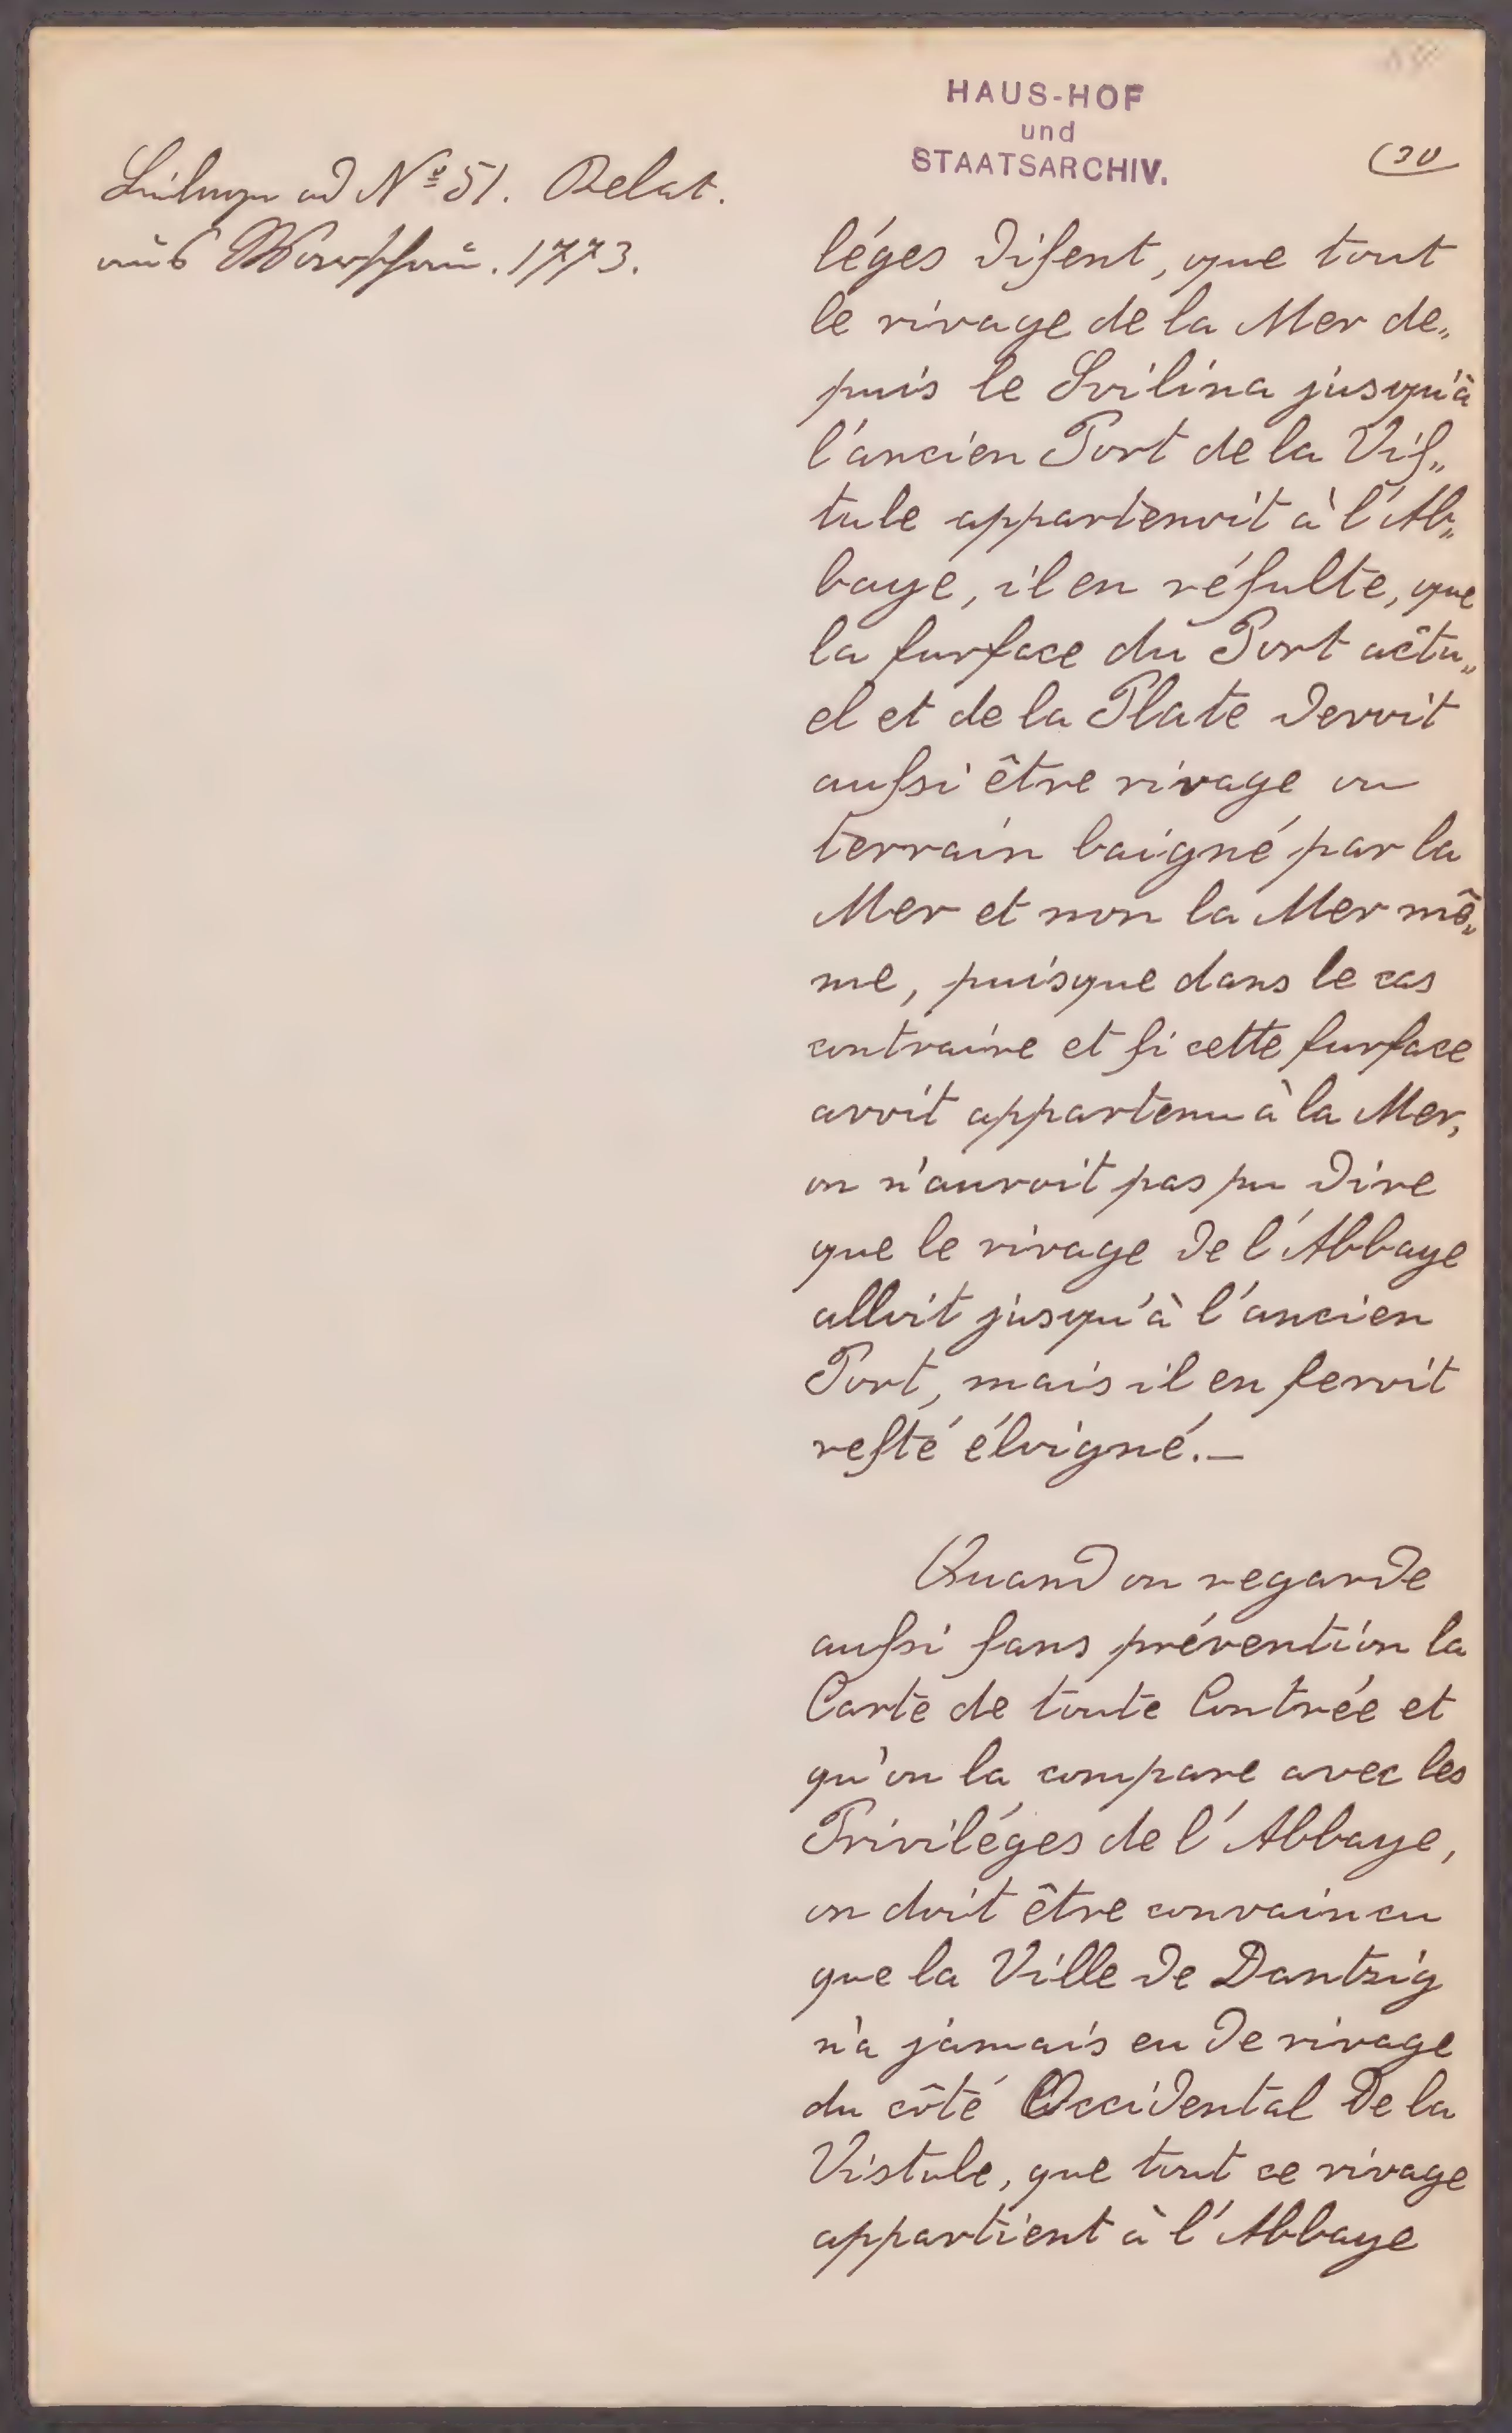 HAUS-HOF
und
STAATSARCHIV.
(30
Beilage ad Nº 51. Relat.
aus Warschau. 1773.
léges disent, que tout
le rivage de la Mer de„
puis le Svilina jusqu'à
l'ancien Port de la Vis„
tule appartenoit à l'Ab„
baye, il en résulte, que
la surface du Port actu„
el et de la Plate devoit
aussi être rivage ou
terrain baigné par la
Mer et non la Mer mê„
me, puisque dans le cas
contraire et si cette surface
avoit appartenu à la Mer,
on n'auroit pas pu dire
que le rivage de l'Abbaye
alloit jusqu'à l'ancien
Port, mais il en seroit
resté éloigné.—
Quand on regarde
aussi sans prévention la
Carte de toute Contrée et
qu'on la compare avec les
Priviléges de l'Abbaye,
on doit être convaincu
que la Ville de Dantzig
n'a jamais eu de rivage
du côté Occidental de la
Vistule, que tout ce rivage
appartient à l'Abbaye